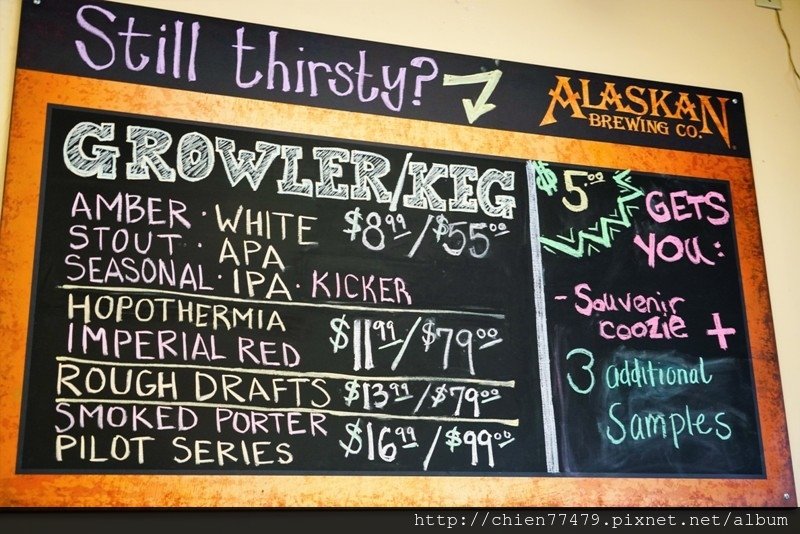 Still thirsty?
ALASKAN
BREWING CO.
GROWLER/KEG
AMBER · WHITE $8.99/$55.00
STOUT · APA
SEASONAL · IPA · KICKER
HOPOTHERMIA
IMPERIAL RED $11.99/$79.00
ROUGH DRAFTS $13.99/$79.00
SMOKED PORTER
PILOT SERIES $16.99/$99.00
$5.00 GETS
YOU:
- Souvenir
coozie +
3 additional
Samples
http://chien77479.pixnet.net/album